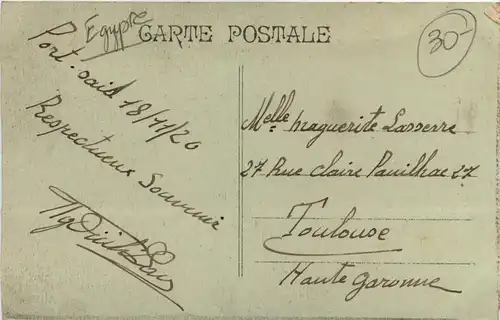 Egypte
CARTE POSTALE
30-
Port-said 18/11/20
Respectueux Souvenir
Melle Marguerite Lasserre
27 Rue Claire Pauilhac 27
Toulouse
Haute Garonne